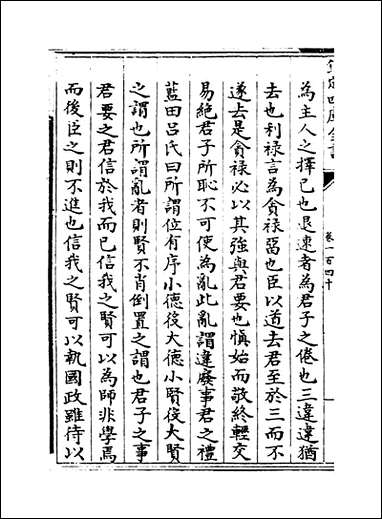 欽定四庫全書
卷一百四十
為主人之擇己也退速者為君子之倦也三違違猶
去也利祿言為貪祿㽞也臣以道去君至於三而不
遂去是貪祿必以其強與君要也慎始而敬終輕交
易絶君子所恥不可使為亂此亂謂違廢事君之禮
藍田吕氏曰所謂位有序小徳役大徳小賢役大賢
之謂也所謂亂者則賢不肖倒置之謂也君子之事
君要之君信於我而已信我之賢可以為師非學焉
而後臣之則不進也信我之賢可以執國政雖待以